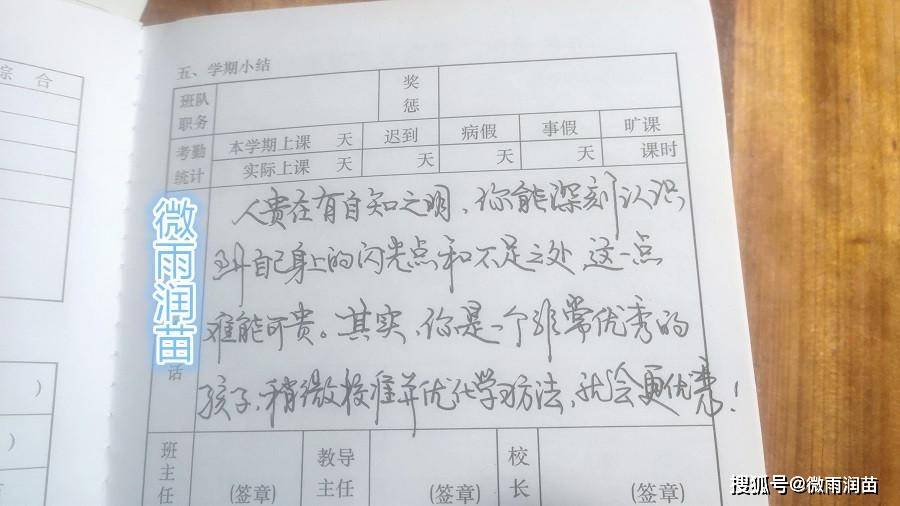 综 合
五、学期小结
班队职务
奖惩
考勤统计
本学期上课 天 迟到 病假 事假 旷课
实际上课 天 天 天 天 课时
人贵在有自知之明，你能深刻认识
到自己身上的闪光点和不足之处 这一点
难能可贵。其实，你是一个非常优秀的
孩子，稍微校准并优化学习方法，就会更优秀！
话
微雨润苗
)
)
班主任
(签章)
教导主任
(签章)
校长
(签章)
搜狐号@微雨润苗